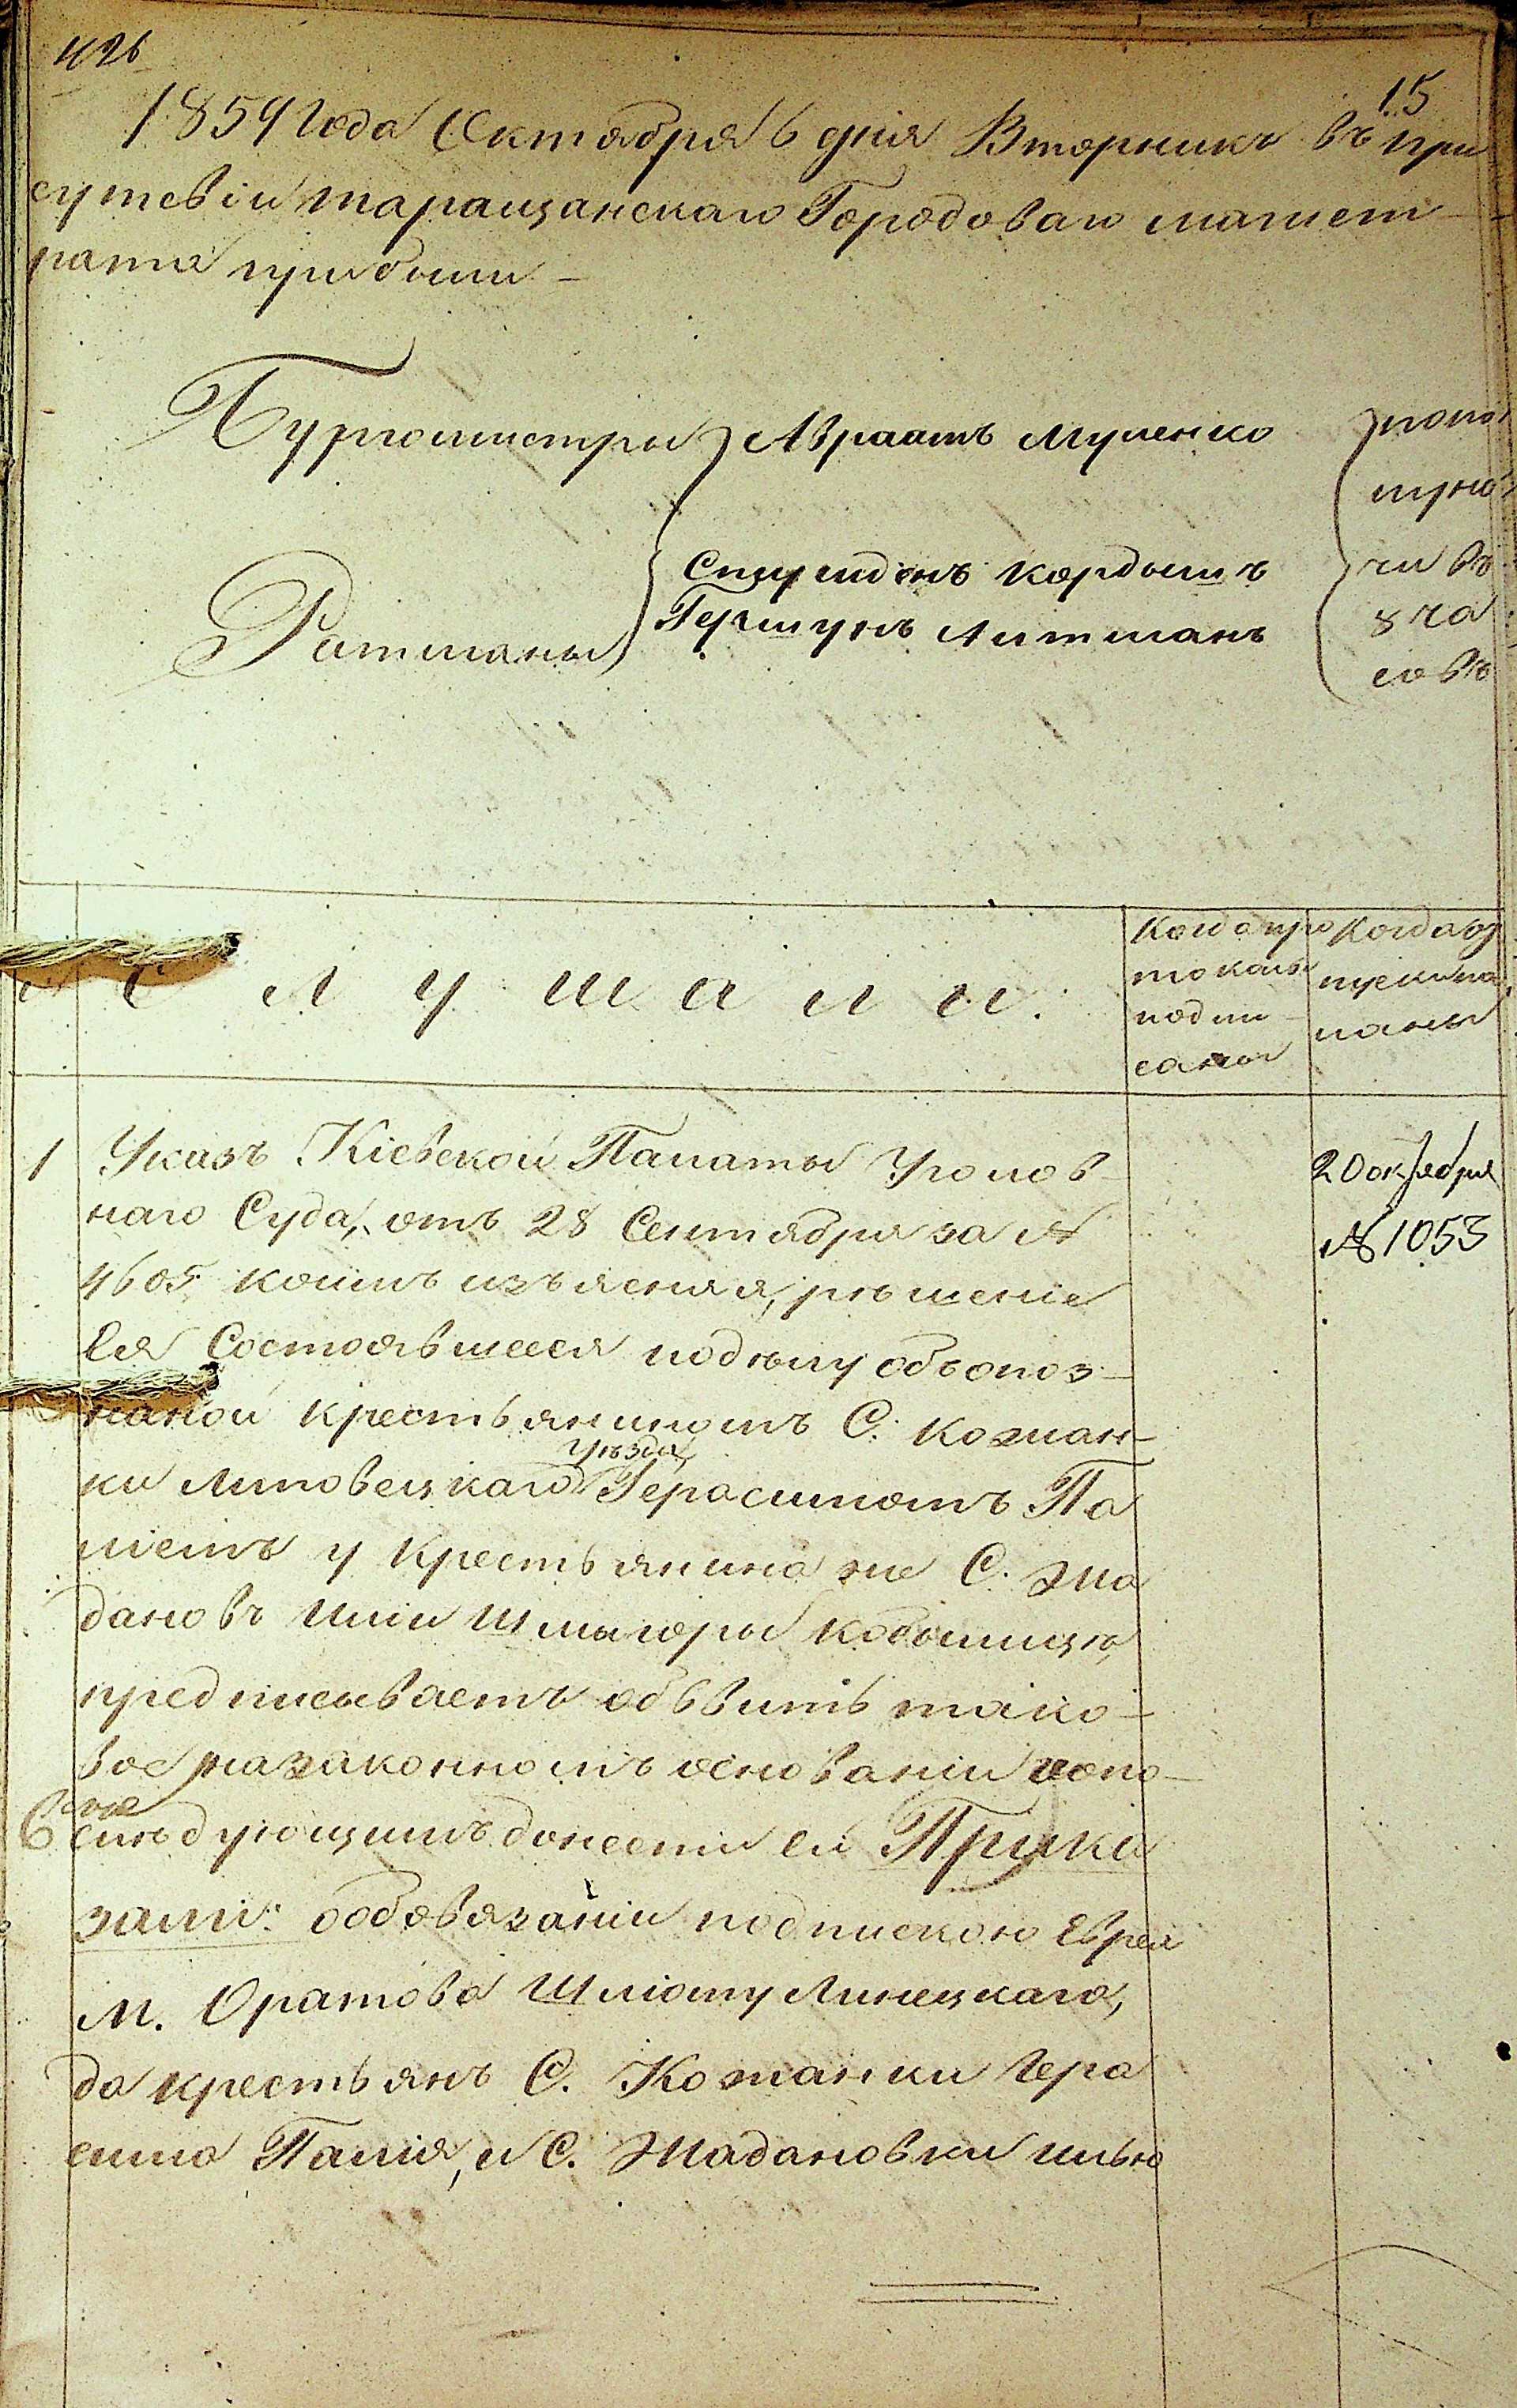 426
15
1859 Года Октября 6 дня Вторникъ въ при
сутсвіи таращанскаго Городоваго магист-
рата прибыли -
Бургомистры Авраамъ
попо
луно
чи въ
8 ча
совъ
Кордышъ
Ратманы Гершунъ Литманъ
№ С л у ш а л и.
Когда про
токолы
подпи-
саны
Когда от
пуски по
1 Указъ Кіевской Палаты Уголов-
наго Суда, отъ 28 Сентября за №
4605. коимъ изъясняя, рѣшеніе
Ея Состоявшееся подѣлу объопоз-
наной крестьяниномъ С. Кожан-
ки Липовецкаго Уѣзда, Герасимомъ Па
ліемъ у крестьянина же С. Жа
дановъ Иліи Шмыгоры кобылицю,
предписываетъ объвить тако-
вое назаконномъ основаніи ионо-
слѣдующимъ донести ей Прика
зали: обобовязаніи подпискою Еврея
м. Оратова Шліому Линецкаго,
да крестьянъ С. Кожанки Гера
сима Палія, и С. Жадановки Илью
20 октября
№ 1053